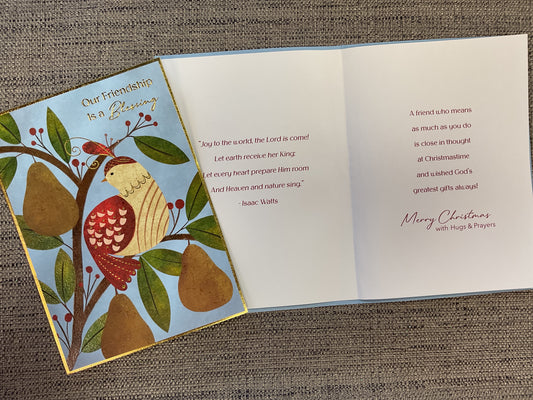 Our Friendship
is a Blessing
"Joy to the world, the Lord is come!
Let earth receive her King;
Let every heart prepare Him room
And Heaven and nature sing."
- Isaac Watts
A friend who means
as much as you do
is close in thought
at Christmastime
and wished God's
greatest gifts always!
Merry Christmas
with Hugs & Prayers